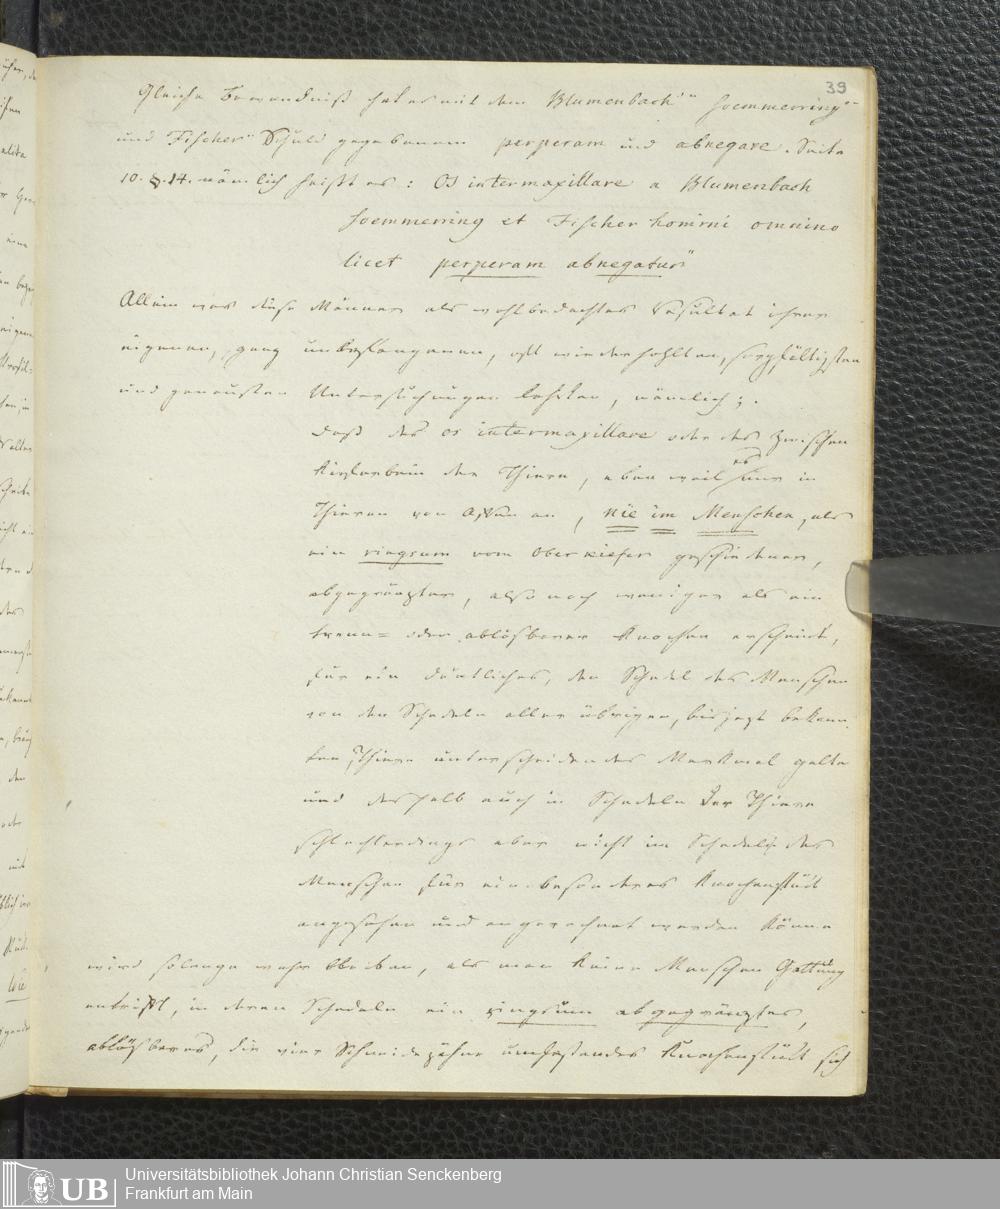 39
Gleiche Bewandniß hat es mit dem Blumenbach'" Soemmerring"
und Fischer" Schuld gegebenen perperam und abnegare. Seite
10. §. 14. nämlich heißt es: Os intermaxillare a Blumenbach
Soemmerring et Fischer homini omnino
licet perperam abnegatur"
Allein was diese Männer als wohlbedachtes Resultat ihrer
eigenen, ganz unbefangenen, oft wiederhohlten, sorgfältigsten
und genausten Untersuchungen lehrten, nämlich;
daß das os intermaxillare oder das Zwischen
Kieferbein der Thiere, eben weil es nur in
Thieren von Affen an, nie im Menschen, als
ein ringsum vom Oberkiefer geschiedener,
abgegränzter, also noch weniger als ein
trenn= oder ablösbarer Knochen erscheint,
für ein deutliches, den Schedel des Menschen
von den Schedeln aller übrigen, bis jezt bekann
ten Thiere unterscheidendes Merkmal gelte
und deshalb auch in Schedeln der Thiere
schlechterdings aber nicht im Schedel des
Menschen für ein besonderes Knochenstück
angesehen und angerechnet werden könne
wird solange wahr bleiben, als man keine Menschen Gattung
antrifft, in deren Schedeln ein ringsum abgegränztes,
ablösbares, die vier Schneidezähne umfassendes Knochenstück sich
UB
Universitätsbibliothek Johann Christian Senckenberg
Frankfurt am Main